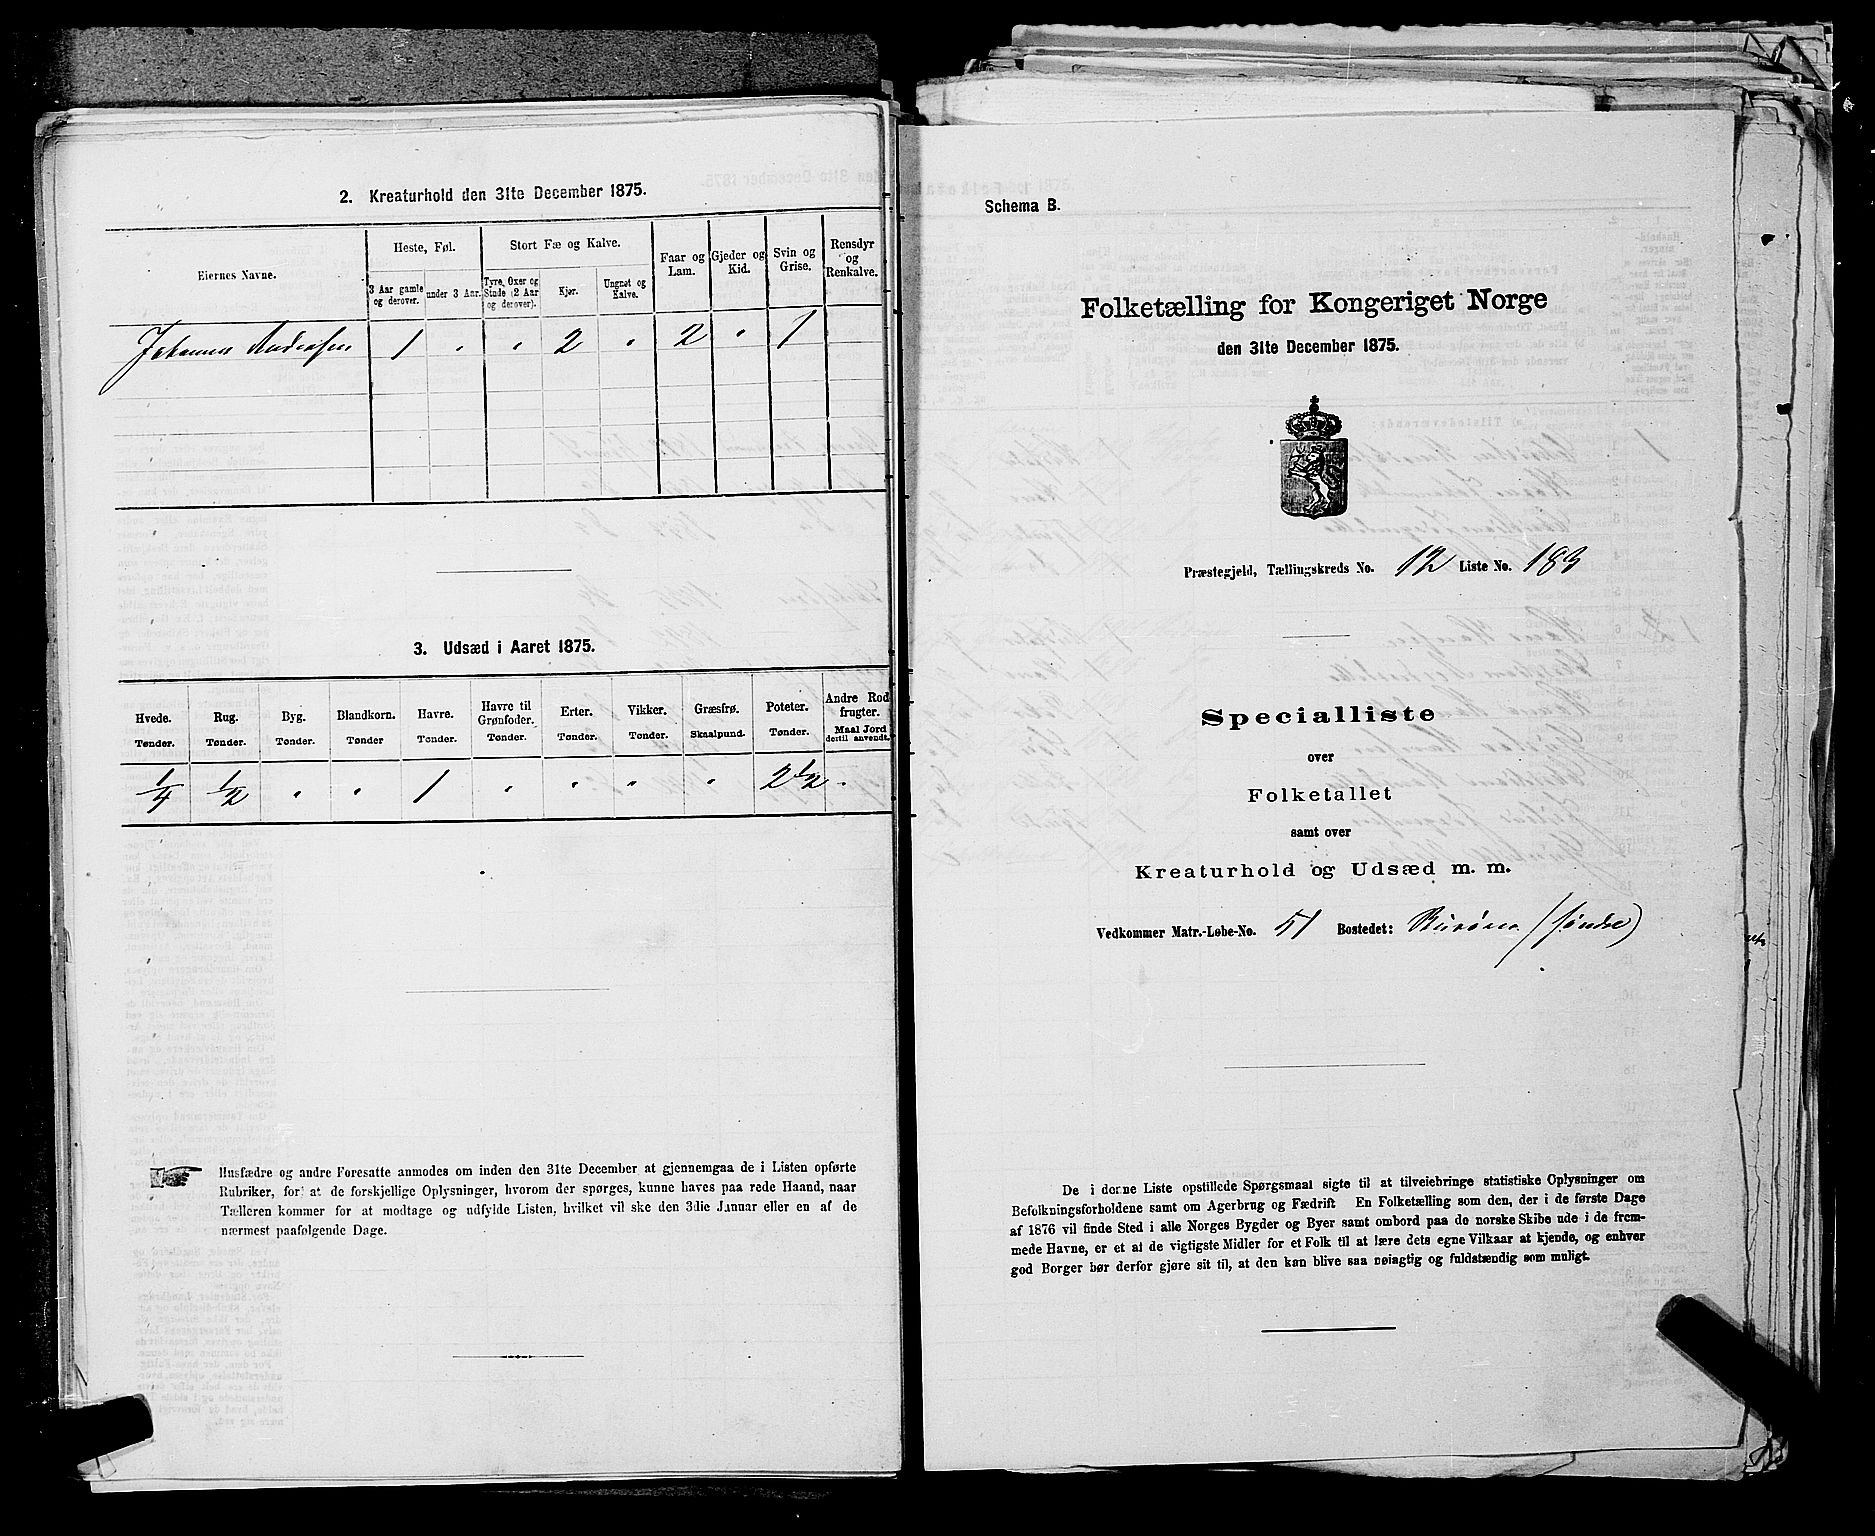 2. Kreaturhold den 31te December 1875.
Eiernes Navne.
Heste, Føl.
3 Aar gamle og derover.
under 3 Aar.
Stort Fæ og Kalve.
Tyre, Oxer og Stude (2 Aar og derover).
Kjør.
Ungnøt og Kalve.
Faar og Lam.
Gjeder og Kid.
Svin og Grise.
Rensdyr og Renkalve.
Johannes Andersen 1 " " 2 " 2 " 1
3. Udsæd i Aaret 1875.
Hvede. Rug. Byg. Blandkorn. Havre. Havre til Grønfoder. Erter. Vikker. Græsfrø. Poteter. Andre Rodfrugter.
Tønder. Tønder. Tønder. Tønder Tønder. Tønder. Tønder. Tønder. Skaalpund. Tønder. Maal Jord dertil anvendt.
1/4 1/2 " " 1 " " " " 2 1/2 "
Husfædre og andre Foresatte anmodes om inden den 31te December at gjennemgaa de i Listen opførte
Rubriker, for at de forskjellige Oplysninger, hvorom der spørges, kunne haves paa rede Haand, naar
Tælleren kommer for at modtage og udfylde Listen, hvilket vil ske den 3die Januar eller en af de
nærmest paafølgende Dage.
Schema B.
Folketælling for Kongeriget Norge
den 31te December 1875.
Præstegjeld, Tællingskreds No. 12 Liste No. 183
Specialliste
over
Folketallet
samt over
Kreaturhold og Udsæd m. m.
Vedkommer Matr.-Løbe-No. 51 Bostedet: (søndre)
De i denne Liste opstillede Spørgsmaal sigte til at tilveiebringe statistiske Oplysninger om
Befolkningsforholdene samt om Agerbrug og Fædrift En Folketælling som den, der i de første Dage
af 1876 vil finde Sted i alle Norges Bygder og Byer samt ombord paa de norske Skibe ude i de frem-
mede Havne, er et af de vigtigste Midler for et Folk til at lære dets egne Vilkaar at kjende, og enhver
god Borger bør derfor gjøre sit til, at den kan blive saa nøiagtig og fuldstændig som muligt.